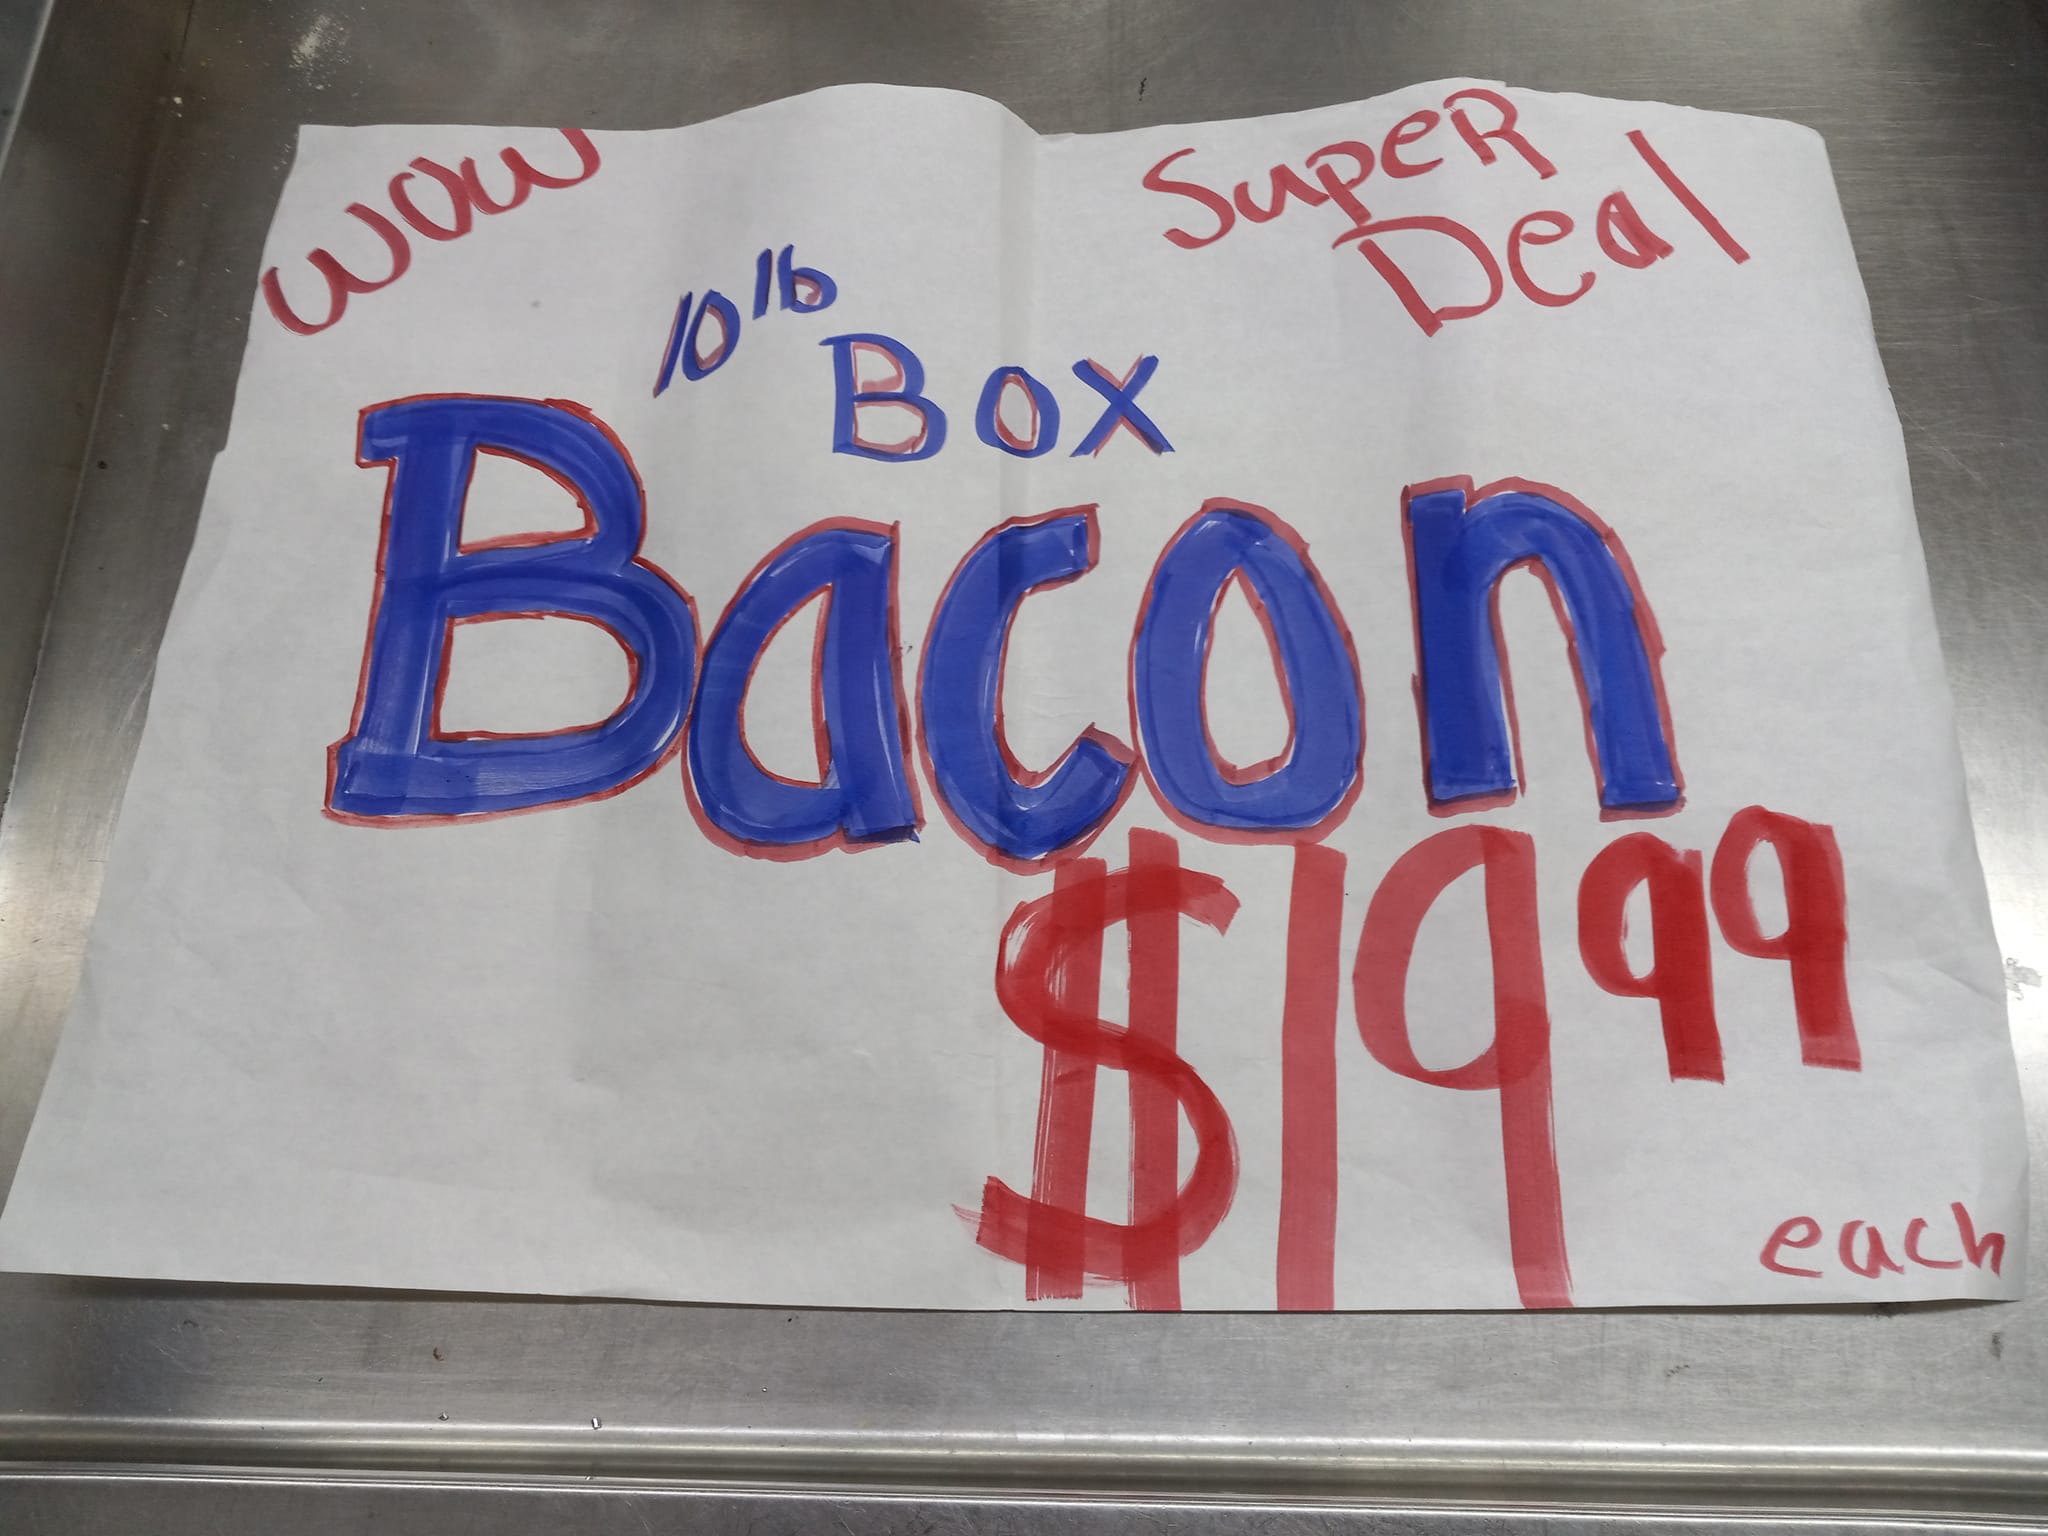 WOW
SUPER
Deal
10 lb
Box
Bacon
$19 99
each